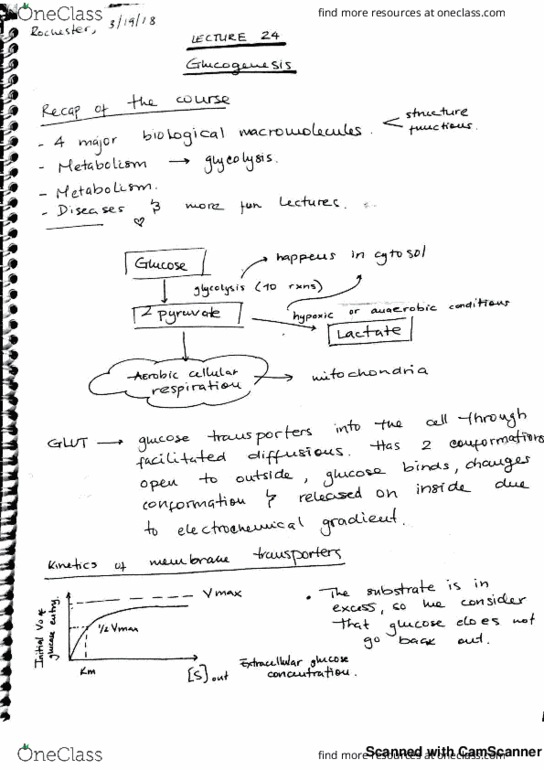 OneClass
find more resources at oneclass.com
Rochester, 3/19/18
LECTURE 24
Glucogenesis
Recap of the course
- 4 major biological macromolecules. < structure
functions.
- Metabolism → glycolysis.
- Metabolism.
- Diseases & more fun lectures.
♡
Glucose
→ happens in cytosol
glycolysis (10 rxns)
2 pyruvate
hypoxic or anaerobic conditions
Lactate
Aerobic cellular
respiration
→ mitochondria
GLUT → glucose transporters into the cell through
facilitated diffusions. Has 2 conformations
open to outside, glucose binds, changes
conformation & released on inside due
to electrochemical gradient.
Kinetics of membrane transporters
Initial Vo of
glucose entry.
Vmax
1/2 Vmax
Km
[S]out
Extracellular glucose
concentration.
• The substrate is in
excess, so we consider
that glucose does not
go back out.
Scanned with CamScanner
OneClass
find more resources at oneclass.com